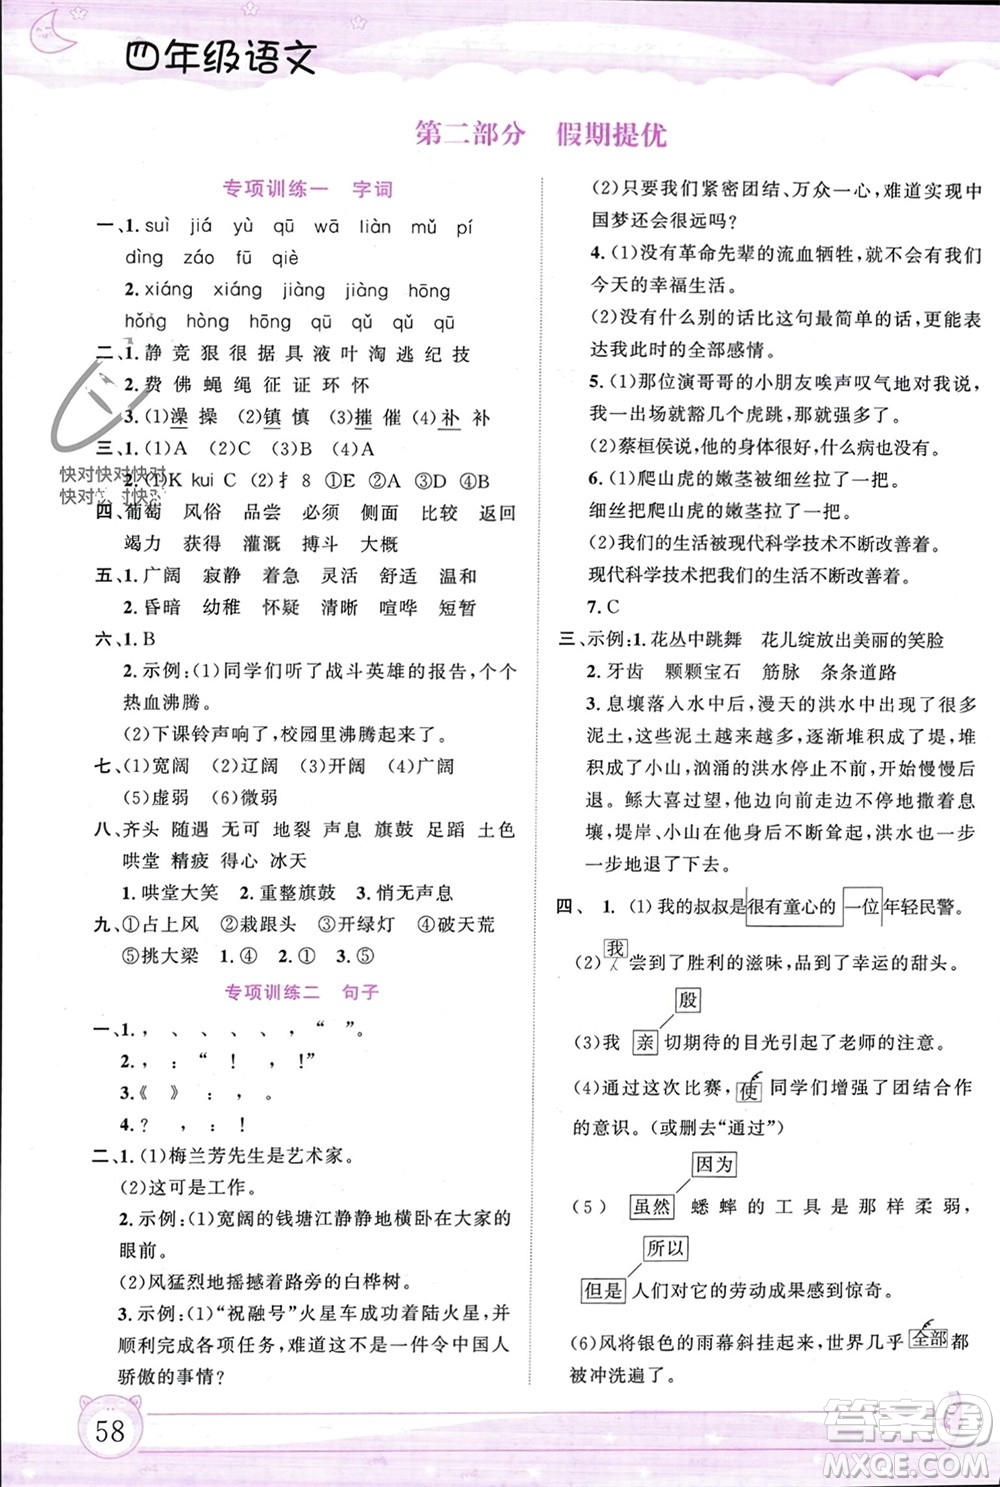 四年级语文
第二部分 假期提优
专项训练一 字词
一、1. suì jiá yù qū wā liàn mǔ pí
dìng záo fū qiè
2. xiáng xiáng jiàng jiàng hōng
hǒng hòng hōng qū qǔ qū qǔ
二、1. 静 竞 狠 很 据 具 液 叶 淘 逃 纪 技
2. 费 佛 蝇 绳 征 证 环 怀
3. (1)澡 操 (2)镇 慎 (3)摧 催 (4)补 补
三、1. (1)A (2)C (3)B (4)A
2. (1)K kuī C (2)扌 8 ①E ②A ③D ④B
四、葡萄 风俗 品尝 必须 侧面 比较 返回
竭力 获得 灌溉 搏斗 大概
五、1. 广阔 寂静 着急 灵活 舒适 温和
2. 昏暗 幼稚 怀疑 清晰 喧哗 短暂
六、1. B
2. 示例:(1)同学们听了战斗英雄的报告,个个
热血沸腾。
(2)下课铃声响了,校园里沸腾起来了。
七、(1)宽阔 (2)辽阔 (3)开阔 (4)广阔
(5)虚弱 (6)微弱
八、齐头 随遇 无可 地裂 声息 旗鼓 足蹈 土色
哄堂 精疲 得心 冰天
1. 哄堂大笑 2. 重整旗鼓 3. 悄无声息
九、①占上风 ②栽跟头 ③开绿灯 ④破天荒
⑤挑大梁 1. ④ 2. ① 3. ⑤
专项训练二 句子
一、1. , 、 、 、 、 , “ ”。
2. , :“ ! , !”
3.《 》 : , 。
4. ? , : !
二、1. (1)梅兰芳先生是艺术家。
(2)这可是工作。
2. 示例:(1)宽阔的钱塘江静静地横卧在大家的
眼前。
(2)风猛烈地摇撼着路旁的白桦树。
3. 示例:(1)“祝融号”火星车成功着陆火星,并
顺利完成各项任务,难道这不是一件令中国人
骄傲的事情?
(2)只要我们紧密团结、万众一心,难道实现中
国梦还会很远吗?
4. (1)没有革命先辈的流血牺牲,就没有我们今
天的幸福生活。
(2)没有什么别的话比这句最简单的话,更能表
达我此时的全部感情。
5. (1)那位演哥哥的小朋友唉声叹气地对我说,
我一出场就豁虎跳,一共豁了几个虎跳。
(2)蔡桓侯说,他的身体很好,什么病也没有。
6. (1)爬山虎的嫩茎被细丝拉了一把。
细丝把爬山虎的嫩茎拉了一把。
(2)我们的生活被现代科学技术不断改善着。
现代科学技术把我们的生活不断改善着。
7. C
三、示例:1. 花丛中跳舞 花儿绽放出美丽的笑脸
2. 牙齿 颗颗宝石 筋脉 条条道路
3. 息壤落入水中后,漫天的洪水中出现了很多
泥土,这些泥土越来越多,逐渐堆积成了堤,堆
积成了小山,汹涌的洪水停止不前,开始慢慢后
退。鲧大喜过望,他边前行边不停地撒着息
壤,堤岸、小山在他身后不断耸起,洪水一步一
步地退了下去。
四、1. (1)我的叔叔是很有童心的一位年轻民警。
我
(2)尝到了胜利的滋味,品到了幸运的甜头。
殷
(3)我 亲 切期待的目光引起了老师的注意。
(4)通过这次比赛,使同学们增强了团结合作
的意识。(或删去“通过”)
因为
(5) 虽然 蟋蟀的工具是那样柔弱,
所以
但是 人们对它的劳动成果感到惊奇。
(6)风将银色的雨幕斜挂起来,世界几乎全部都
被冲洗遍了。
58
快对快对快对
快对 对快
答案卷